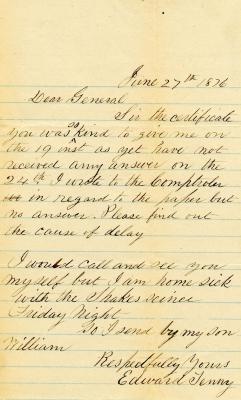 June 27th 1876
Dear General
Sir the certificate
you was so kind to give me on
the 19 inst as yet have not
received any answer on the
24th I wrote to the Comptroler
in regard to the paper but
no answer. Please find out
the cause of delay
I would call and see you
myself but I am home sick
with the Shakes scince
Friday Night
So I send by my son
William
Respedfully Yours
Edward Tenny